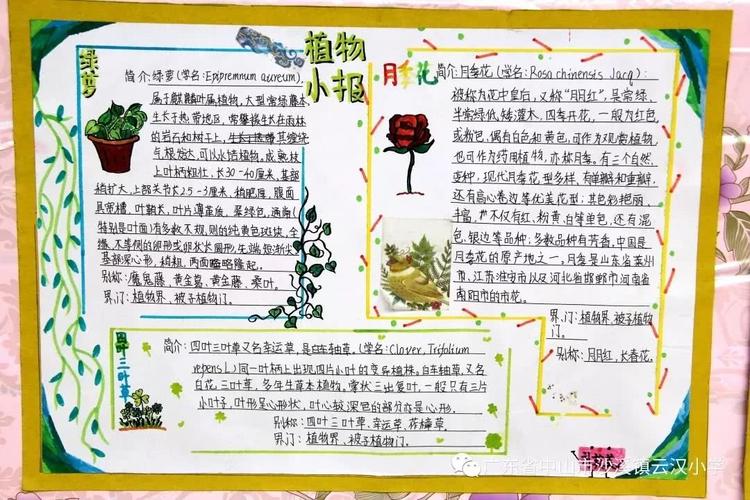 植物
小报
绿萝
简介:绿萝(学名:Epipremnum aureum),
属于麒麟叶属植物,大型常绿藤本,
生长于热带地区,常攀援生长在雨林
的岩石和树干上,生长于热带其缠绕
根发达可以水培植物。成熟枝
上叶柄粗壮,长30-40厘米,基部
稍扩大,上部关节长2.5-3厘米,稍肥厚,腹面
具宽槽,叶鞘长,叶片薄革质,翠绿色,通常(
特别是叶面)有多数不规则的纯黄色斑块,全
缘,不等侧的卵形或卵状长圆形,先端短渐尖,
基部深心形,稍粗,两面略隆起。
别称:魔鬼藤、黄金葛、黄金藤、桑叶。
界门:植物界、被子植物门。
月季花
简介:月季花(学名:Rosa chinensis Jacq):
被称为花中皇后,又称“月月红”,是常绿、
半常绿低矮灌木,四季开花,一般为红色,
或粉色、偶有白色和黄色,可作为观赏植物,
也可作为药用植物,亦称月季。有三个自然
变种,现代月季花型多样,有单瓣和重瓣,
还有高心卷边等优美花型;其色彩艳丽、
丰富,不仅有红、粉黄、白等单色,还有混
色、银边等品种;多数品种有芳香,中国是
月季花的原产地之一。月季是山东省莱州
市、江苏淮安市以及河北省邯郸市河南省
南阳市的市花。
界、门:植物界、被子植物
门。
别称:月月红、长春花。
四叶三叶草
简介:四叶三叶草又名幸运草,是白车轴草。(学名:Clover,Trifolium
repens L)同一叶柄上出现四片小叶的变异植株。白车轴草,又名
白花三叶草,多年生草本植物。掌状三出复叶,一般只有三片
小叶子,叶形呈心形状,叶心较深色的部分亦是心形。
别称:四叶三叶草、幸运草、
界门:植物界、被子植物门。
广东省中山市沙溪镇云汉小学